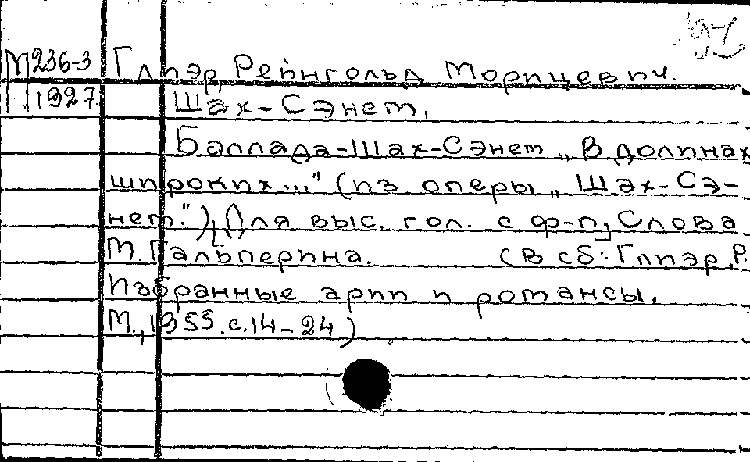 М 236-3 Глиэр, Рейнгольд Морицевич.
1927 Шах-Сэнем.
Баллада-Шах-Сэнем „В долинах
широких..." (из оперы „Шах-Сэ-
нем."). [Для выс. гол. с ф-п.] Слова
М. Гальперина. (В сб: Глиэр, Р.
Избранные арии и романсы.
М., 1955. с. 14-24)